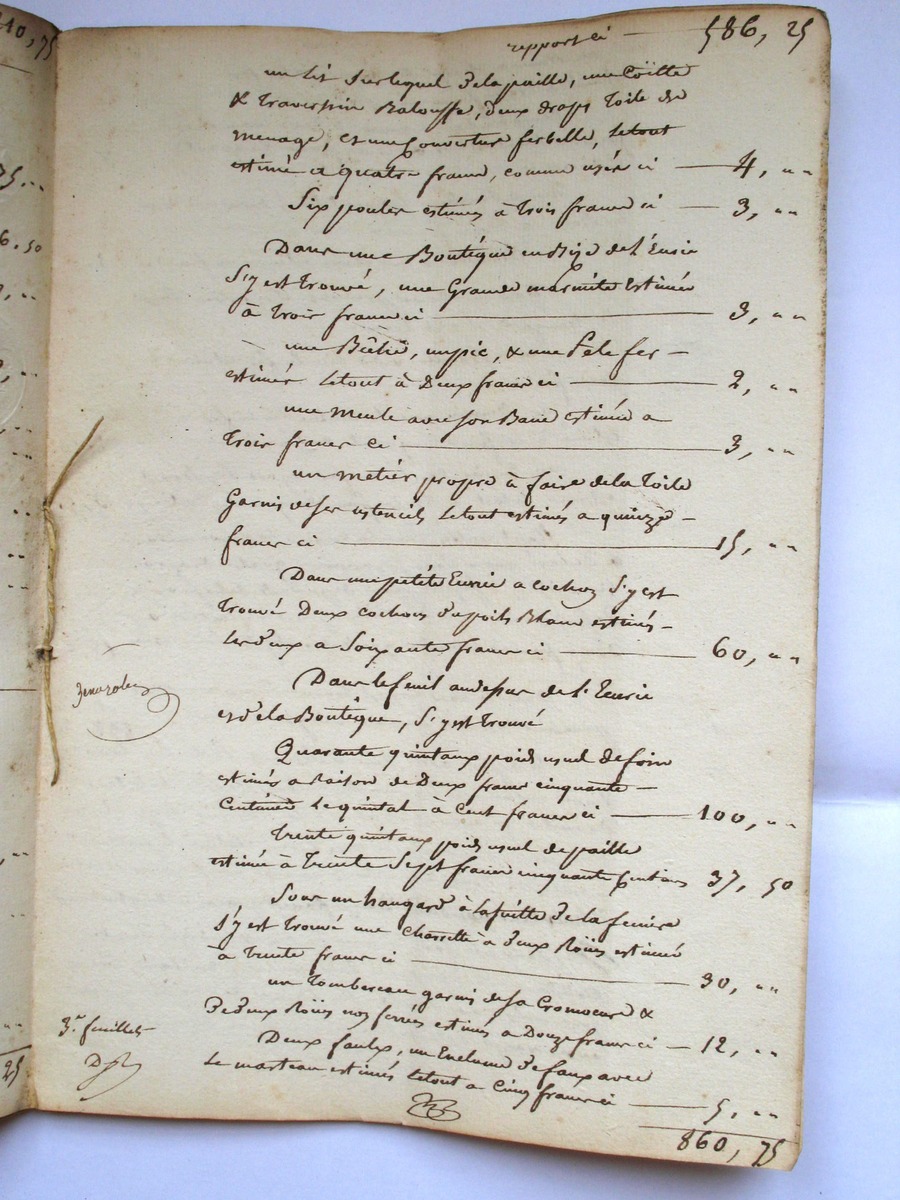 110, 75
75 ..
6. 50
25
report ci — 586, 25
un lit sur lequel de la paille, une Coëtte
& traversin Balouffe, deux draps toile de
menage, et une Couverture , le tout
estimé a quatre franc, comme usés ci — 4, " "
Six poules estimés à trois franc ci — 3, " "
Dans une Boutique en Bize de l'Eurie
S'y est trouvé, une Grande marmite Estimée
à trois franc ci — 3, " "
une Bêche, un pic, & une Pele fer —
estimés le tout à Deux franc ci — 2, " "
une meule avec son Banc estimée a
trois franc ci — 3, " "
un metier propre à faire de la toile
Garnis de ses ustencils le tout estimés a quinze —
franc ci — 15, " "
Dans une petite Eurie a cochon S'y est
trouvé Deux cochons du poils Blanc estimés —
les deux a Soixante franc ci — 60, " "
Dans le fenil au depus de l'Eurie
et de la Boutique, S'y est trouvé
Quarante quintaux poids usuel de foin
estimés a Raison de Deux franc cinquante —
Centimes le quintal à Cent franc ci — 100, " "
trente quintaux poids usuel de paille
estimée à Trente Sept franc cinquante Centimes 37, 50
Sous un hangard à la de la
S'y est trouvé une Charrette à deux Roües estimée
à trente franc ci — 30, " "
un tombereau garnis de sa &
de deux Roües non ferrés estimés a Douze franc ci — 12, " "
Deux faulx, un Enclume de faux avec
le marteau estimés le tout a Cinq franc ci — 5, " "
860, 75
3.e feuillet